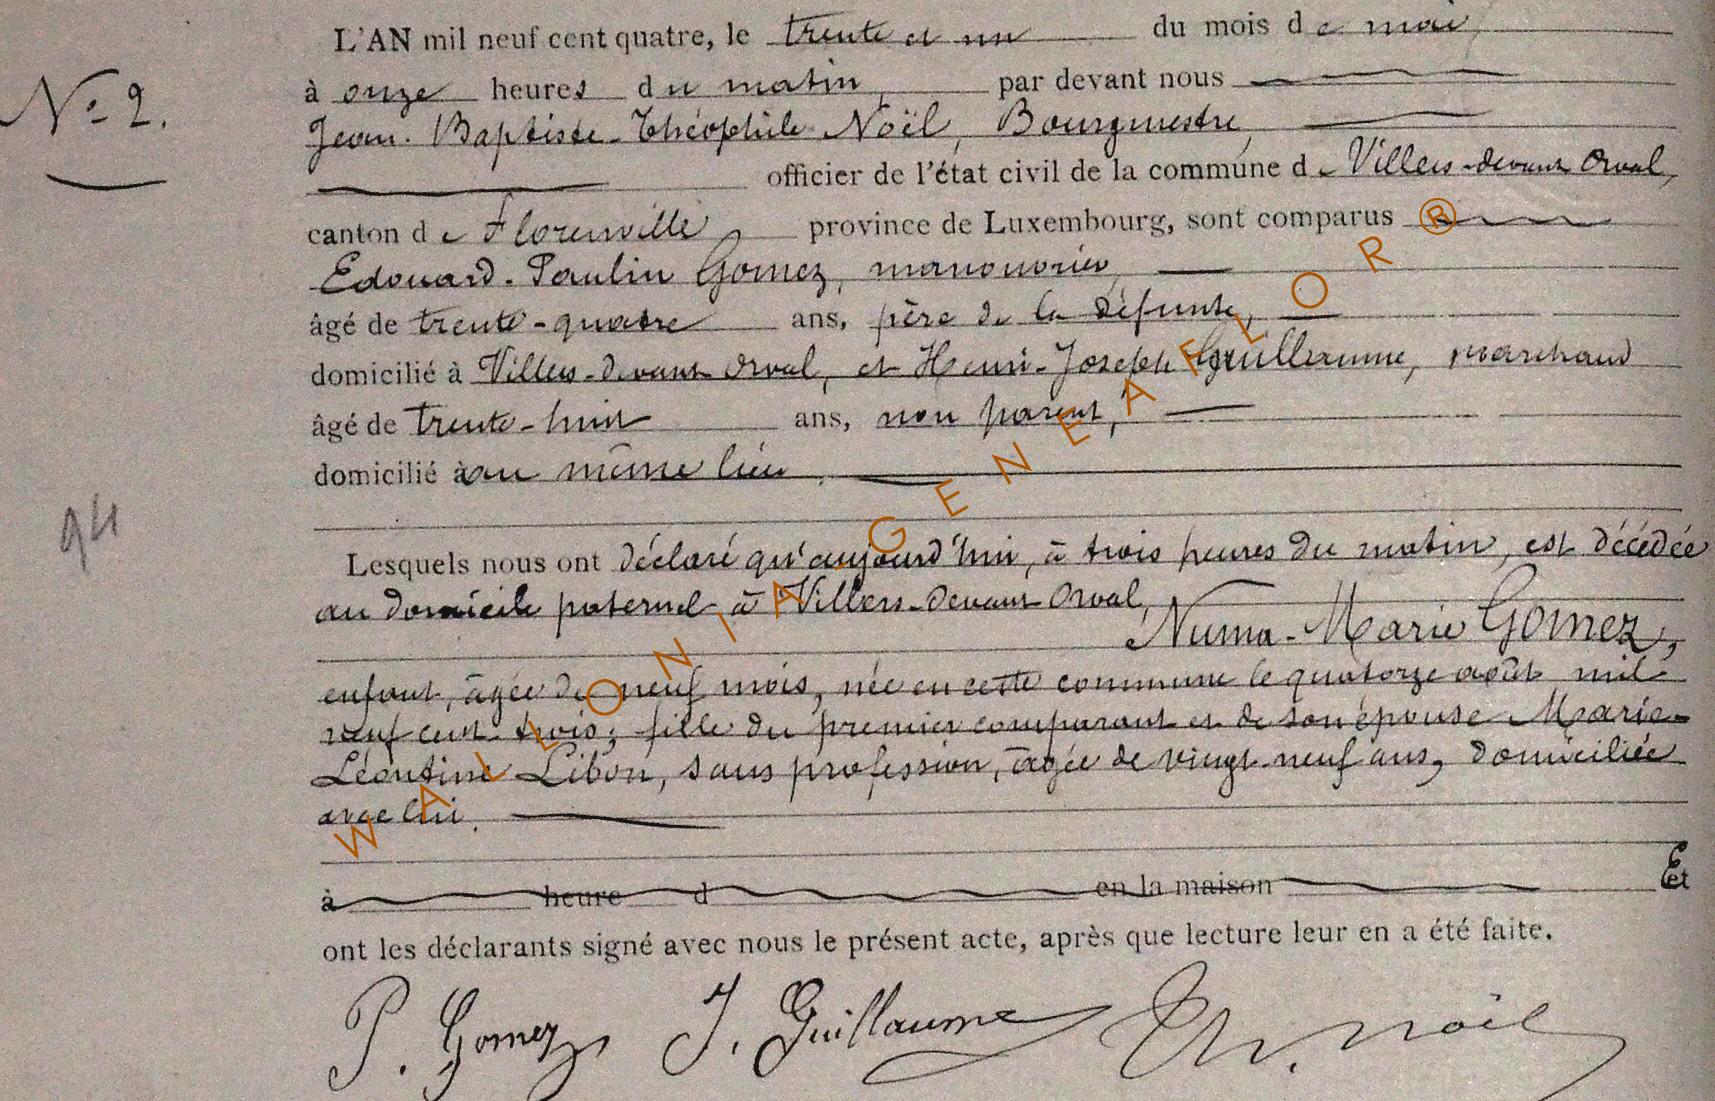 L'AN mil neuf cent quatre, le trente et un du mois de mai
N° 2.
à onze heures du matin, par devant nous
Jean-Baptiste-Théophile Noël, Bourgmestre,
officier de l'état civil de la commune de Villers-devant Orval,
canton de Florenville province de Luxembourg, sont comparus
Edouard-Paulin Gomez, manouvrier,
âgé de trente-quatre ans, père de la défunte,
domicilié à Villers-devant Orval, et Henri-Joseph Guillaume, marchand
âgé de trente-huit ans, non parent,
domicilié à au même lieu.
94
Lesquels nous ont déclaré qu'aujourd'hui, à trois heures du matin, est décédée
au domicile paternel à Villers-devant Orval,
Numa-Marie Gomez,
enfant, âgée de neuf mois, née en cette commune le quatorze août mil
neuf cent trois; fille du premier comparant et de son épouse Marie-
Léontine Libon, sans profession, âgée de vingt-neuf ans, domiciliée
avec lui.
à heure d en la maison Et
ont les déclarants signé avec nous le présent acte, après que lecture leur en a été faite.
P. Gomez J. Guillaume Th. Noël
WALLONIA-GENEAFLOR®